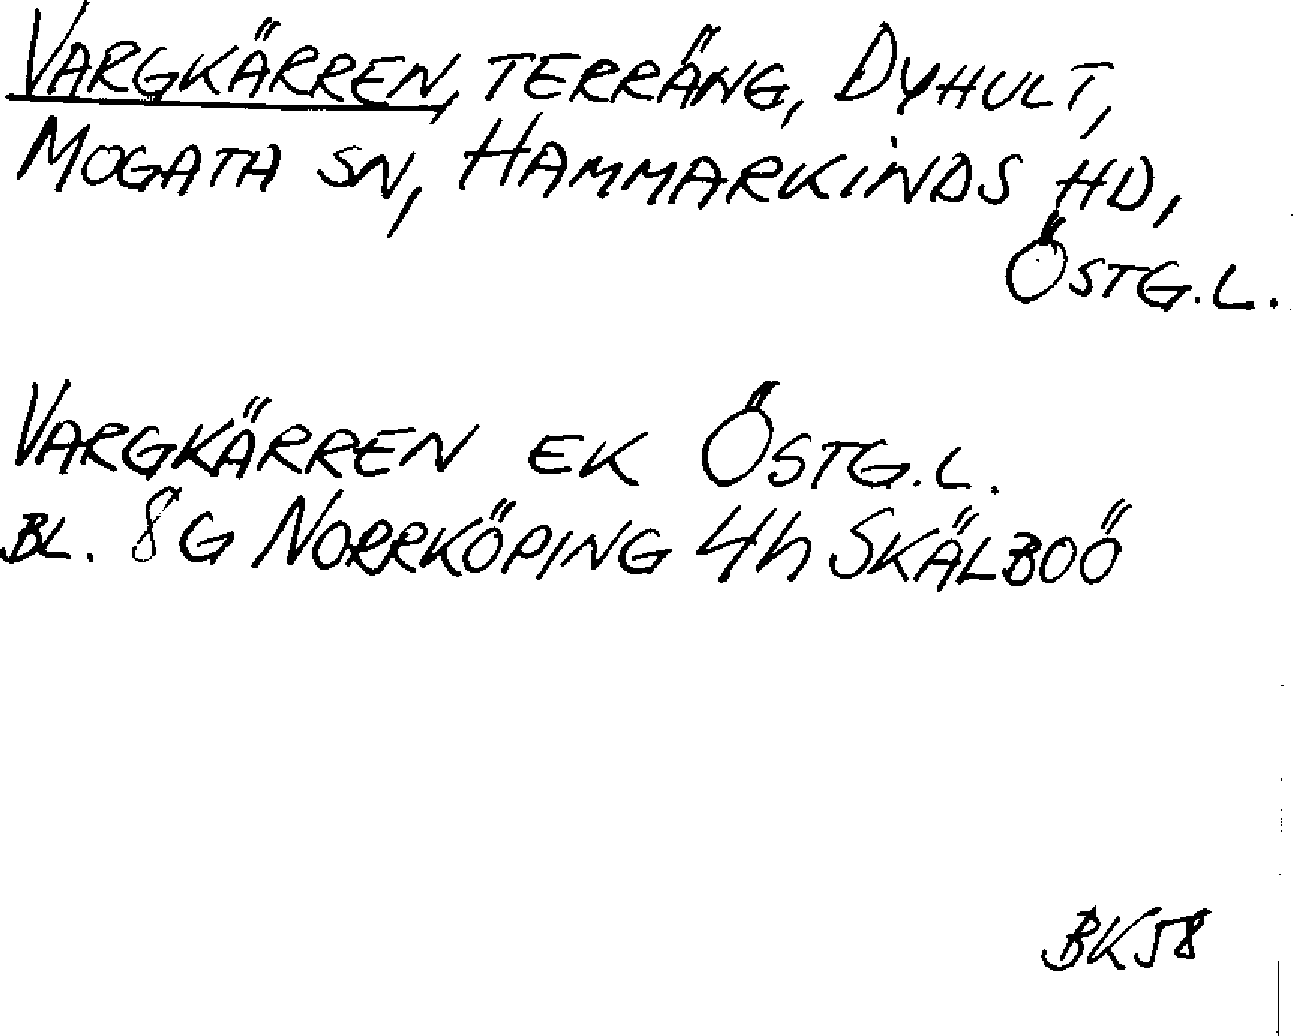 VARGKÄRREN, TERRÄNG, DYHULT,
MOGATA SN, HAMMARKINDS HD,
ÖSTG.L.
VARGKÄRREN EK ÖSTG.L.
BL. 8G NORRKÖPING 4h SKÄLBOÖ
BK58